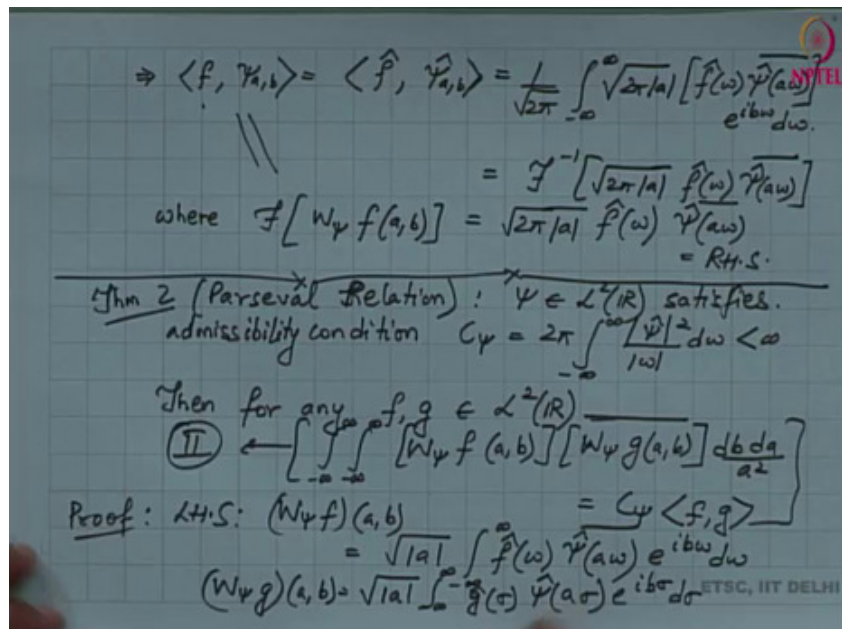 ⇒ ⟨f, ψ_{a,b}⟩ = ⟨f̂, ψ̂_{a,b}⟩ = 1/√2π ∫_{-∞}^{∞} √2π|a| [f̂(ω) \overline{ψ̂(aω)}] e^{ibω} dω.
NPTEL
= ℱ^{-1}[√2π|a| f̂(ω) \overline{ψ̂(aω)}]
where ℱ[W_ψ f(a,b)] = √2π|a| f̂(ω) \overline{ψ̂(aω)}
= R.H.S.
Thm 2 (Parseval Relation): ψ ∈ L²(ℝ) satisfies.
admissibility condition C_ψ = 2π ∫_{-∞}^{∞} |ψ̂|²/|ω| dω < ∞
Then for any f, g ∈ L²(ℝ)
II ← [∫_{-∞}^{∞} ∫_{-∞}^{∞} [W_ψ f (a,b)] [\overline{W_ψ g(a,b)}] db da/a²
= C_ψ ⟨f,g⟩]
Proof: L.H.S: (W_ψ f)(a,b)
= √|a| ∫_{-∞}^{∞} f̂(ω) \overline{ψ̂(aω)} e^{ibω} dω
(W_ψ g)(a,b) = √|a| ∫_{-∞}^{∞} ĝ(σ) \overline{ψ̂(aσ)} e^{ibσ} dσ
ETSC, IIT DELHI